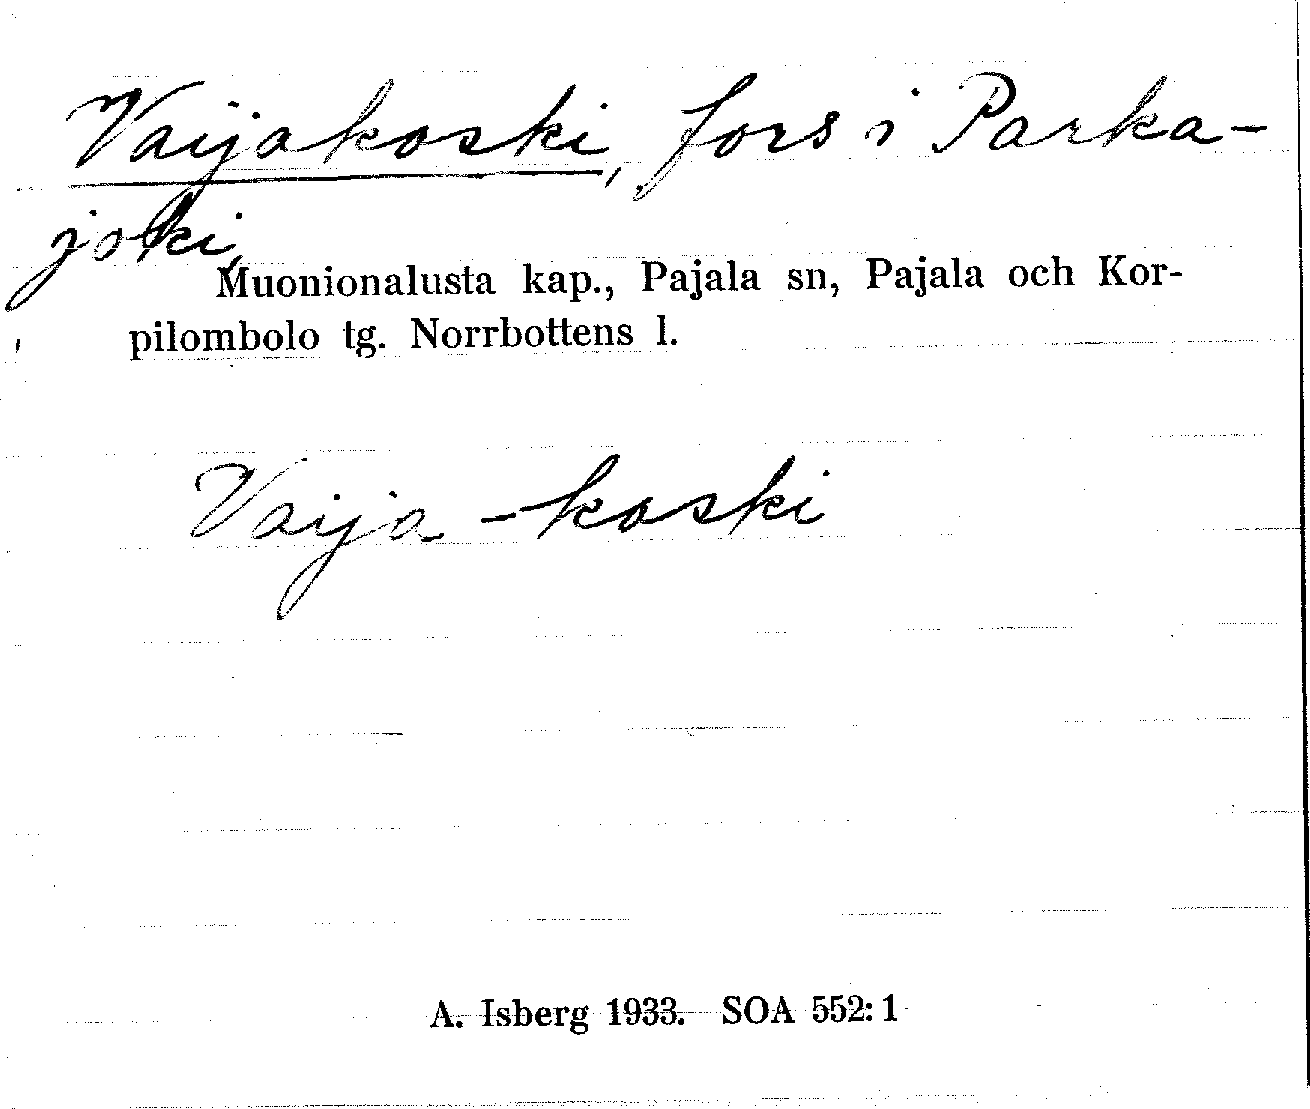 Vaijakoski, fors i Parka-
joki,
Muonionalusta kap., Pajala sn, Pajala och Kor-
pilombolo tg. Norrbottens l.
Vaija -koski
A. Isberg 1933. SOA 552:1